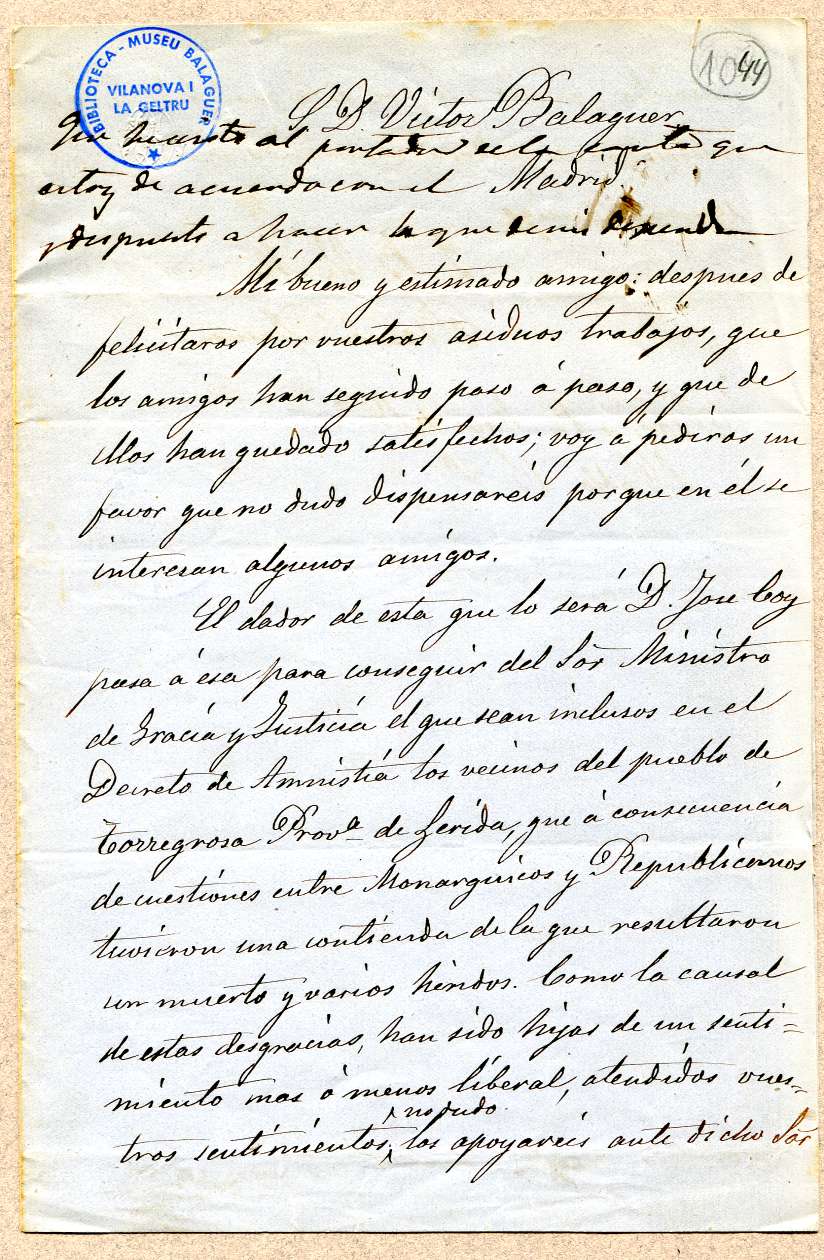 BIBLIOTECA - MUSEU BALAGUER
VILANOVA I
LA GELTRU
1044
S D. Victor Balaguer
al portador de la carta que
estoy de acuerdo con el
Madrid.
y dispuesto a hacer lo que de mi dependa
Mi bueno y estimado amigo: despues de
felicitaros por vuestros asiduos trabajos, que
los amigos han seguido paso á paso, y que de
ellos han quedado satisfechos; voy á pediros un
favor que no dudo dispensareis porque en él se
interesan algunos amigos.
El dador de esta que lo será D. Jose Coy
pasa á esa para conseguir del Sor Ministro
de Gracia y Justicia el que sean inclusos en el
Decreto de Amnistia los vecinos del pueblo de
Torregrosa Prova de Lerida, que á consecuencia
de cuestiones entre Monarquicos y Republicanos
tuvieron una contienda de la que resultaron
un muerto y varios heridos. Como la causal
de estas desgracias, han sido hijas de un senti=
miento mas ó menos liberal, atendidos vues=
tros sentimientos, no dudo los apoyareis ante dicho Sor